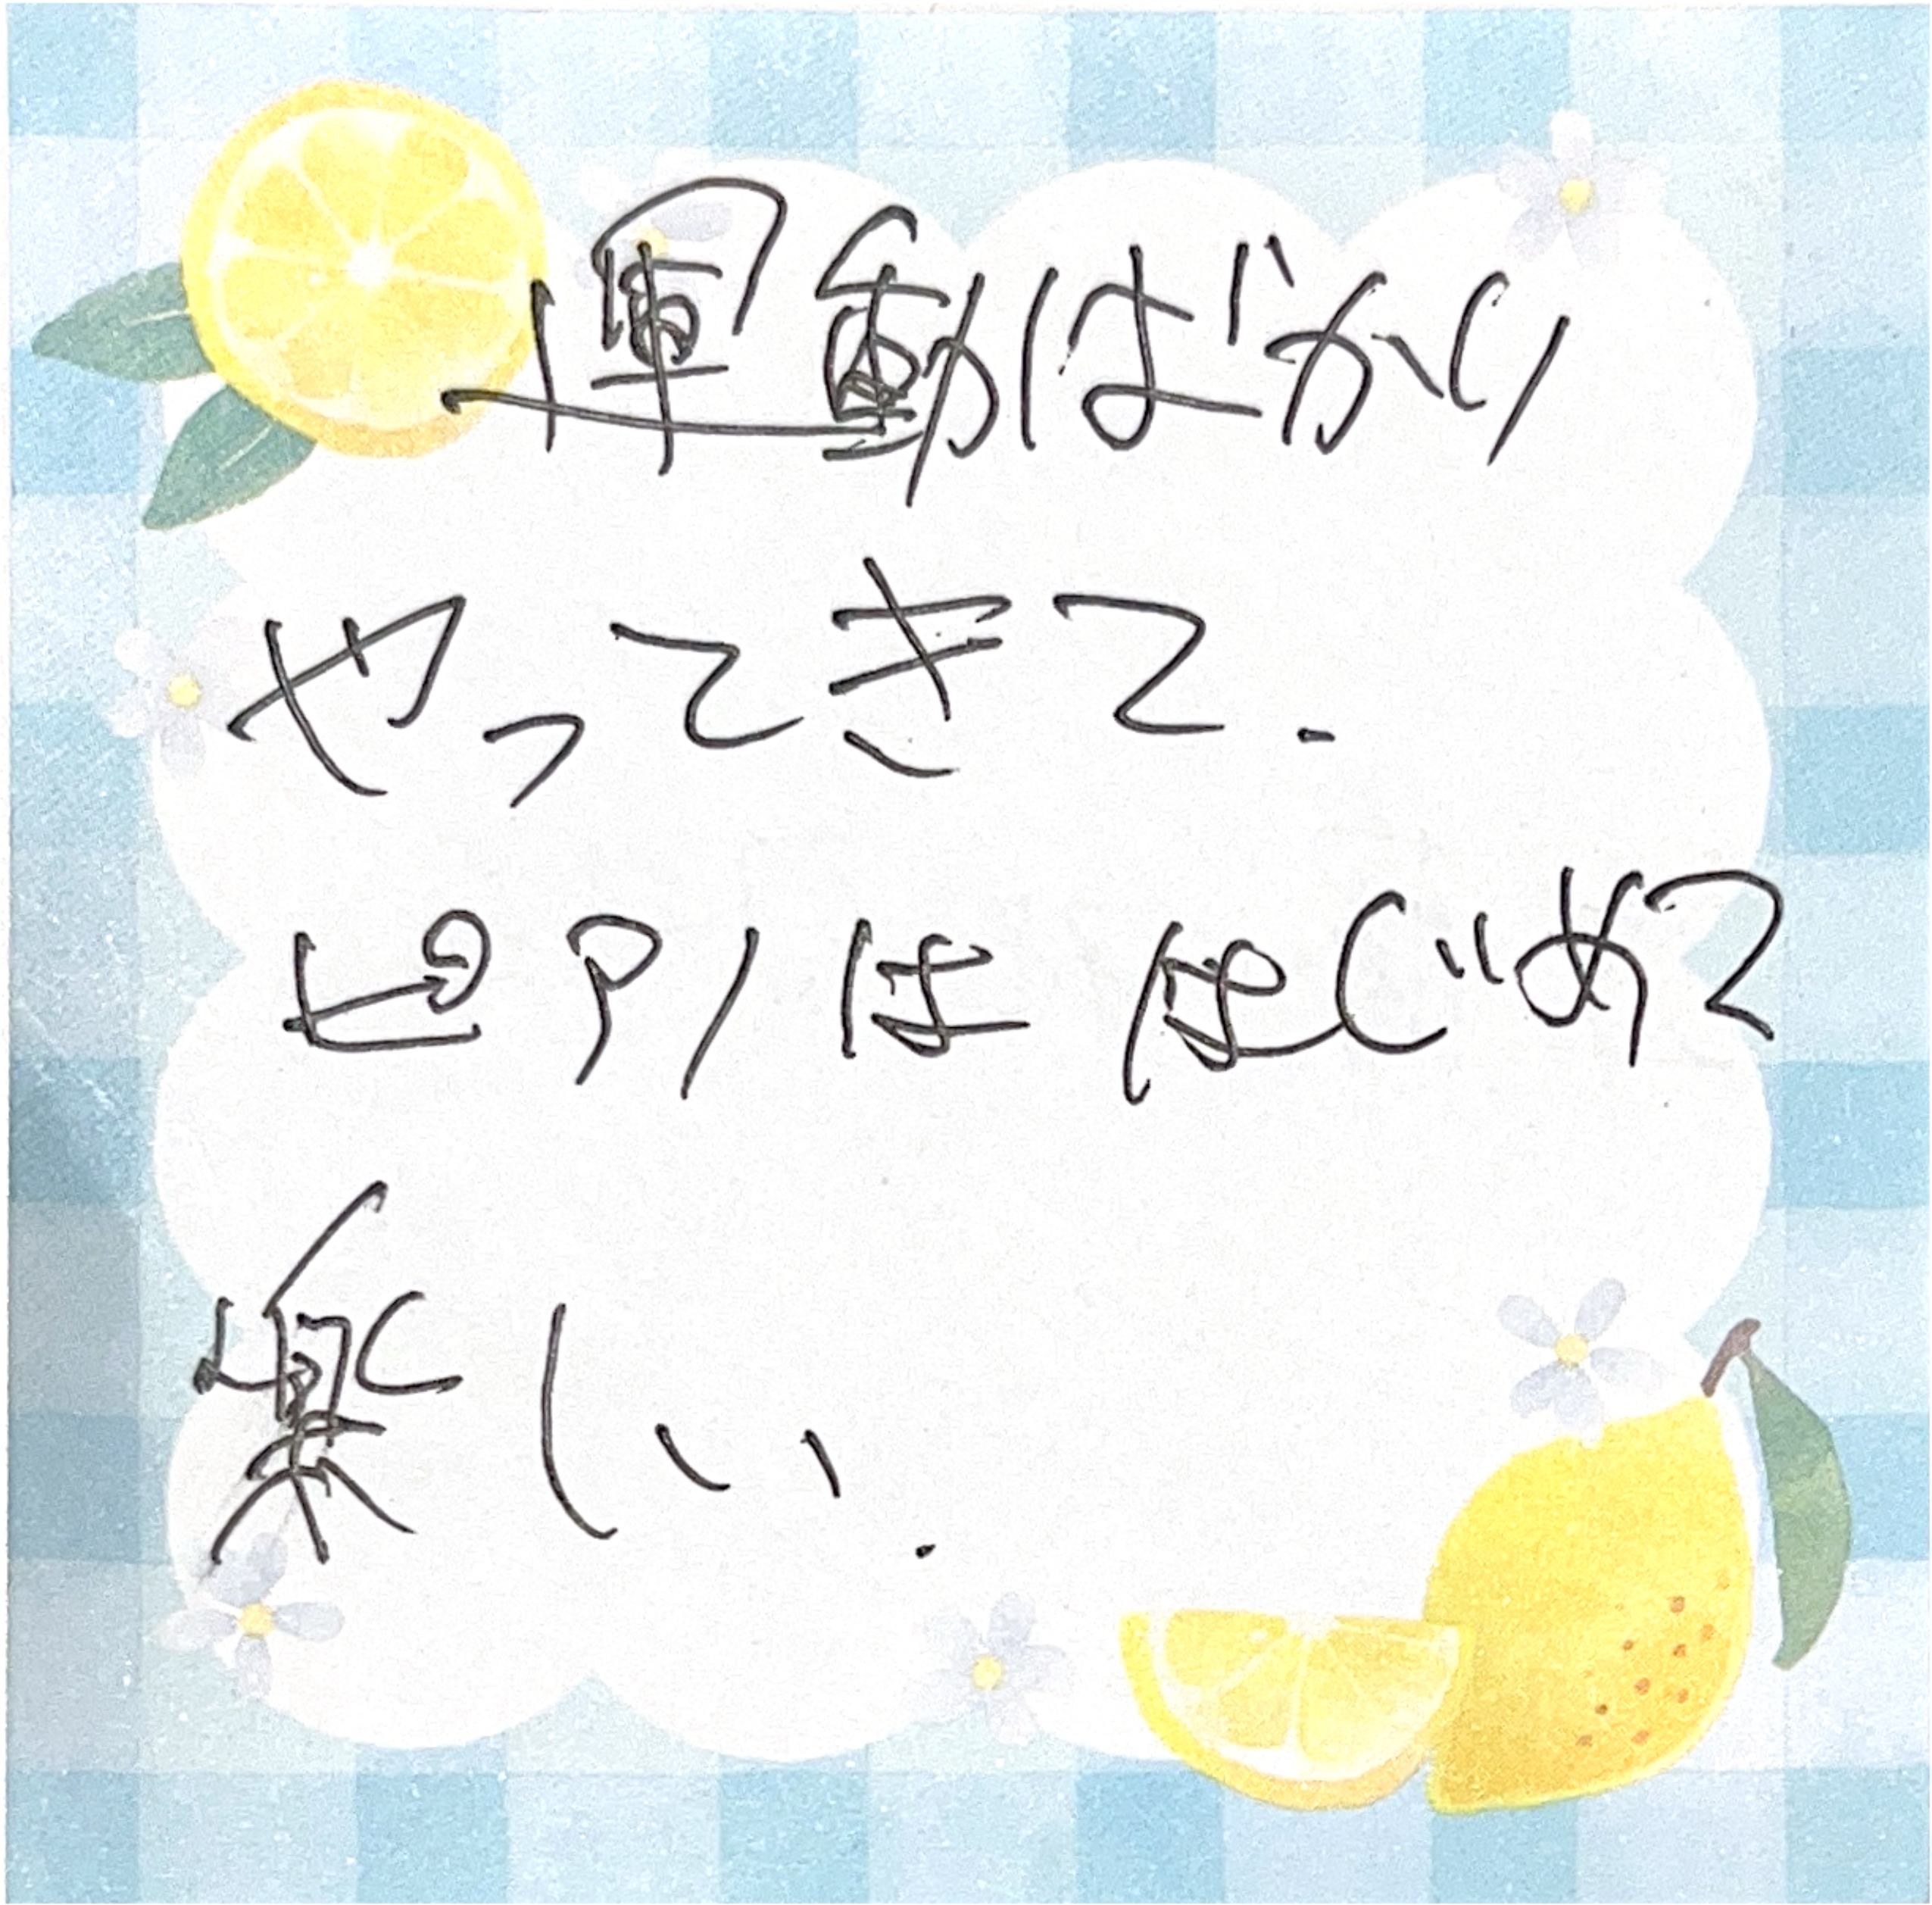 運動ばかり
やってきて.
ピアノは はじめて
楽しい.